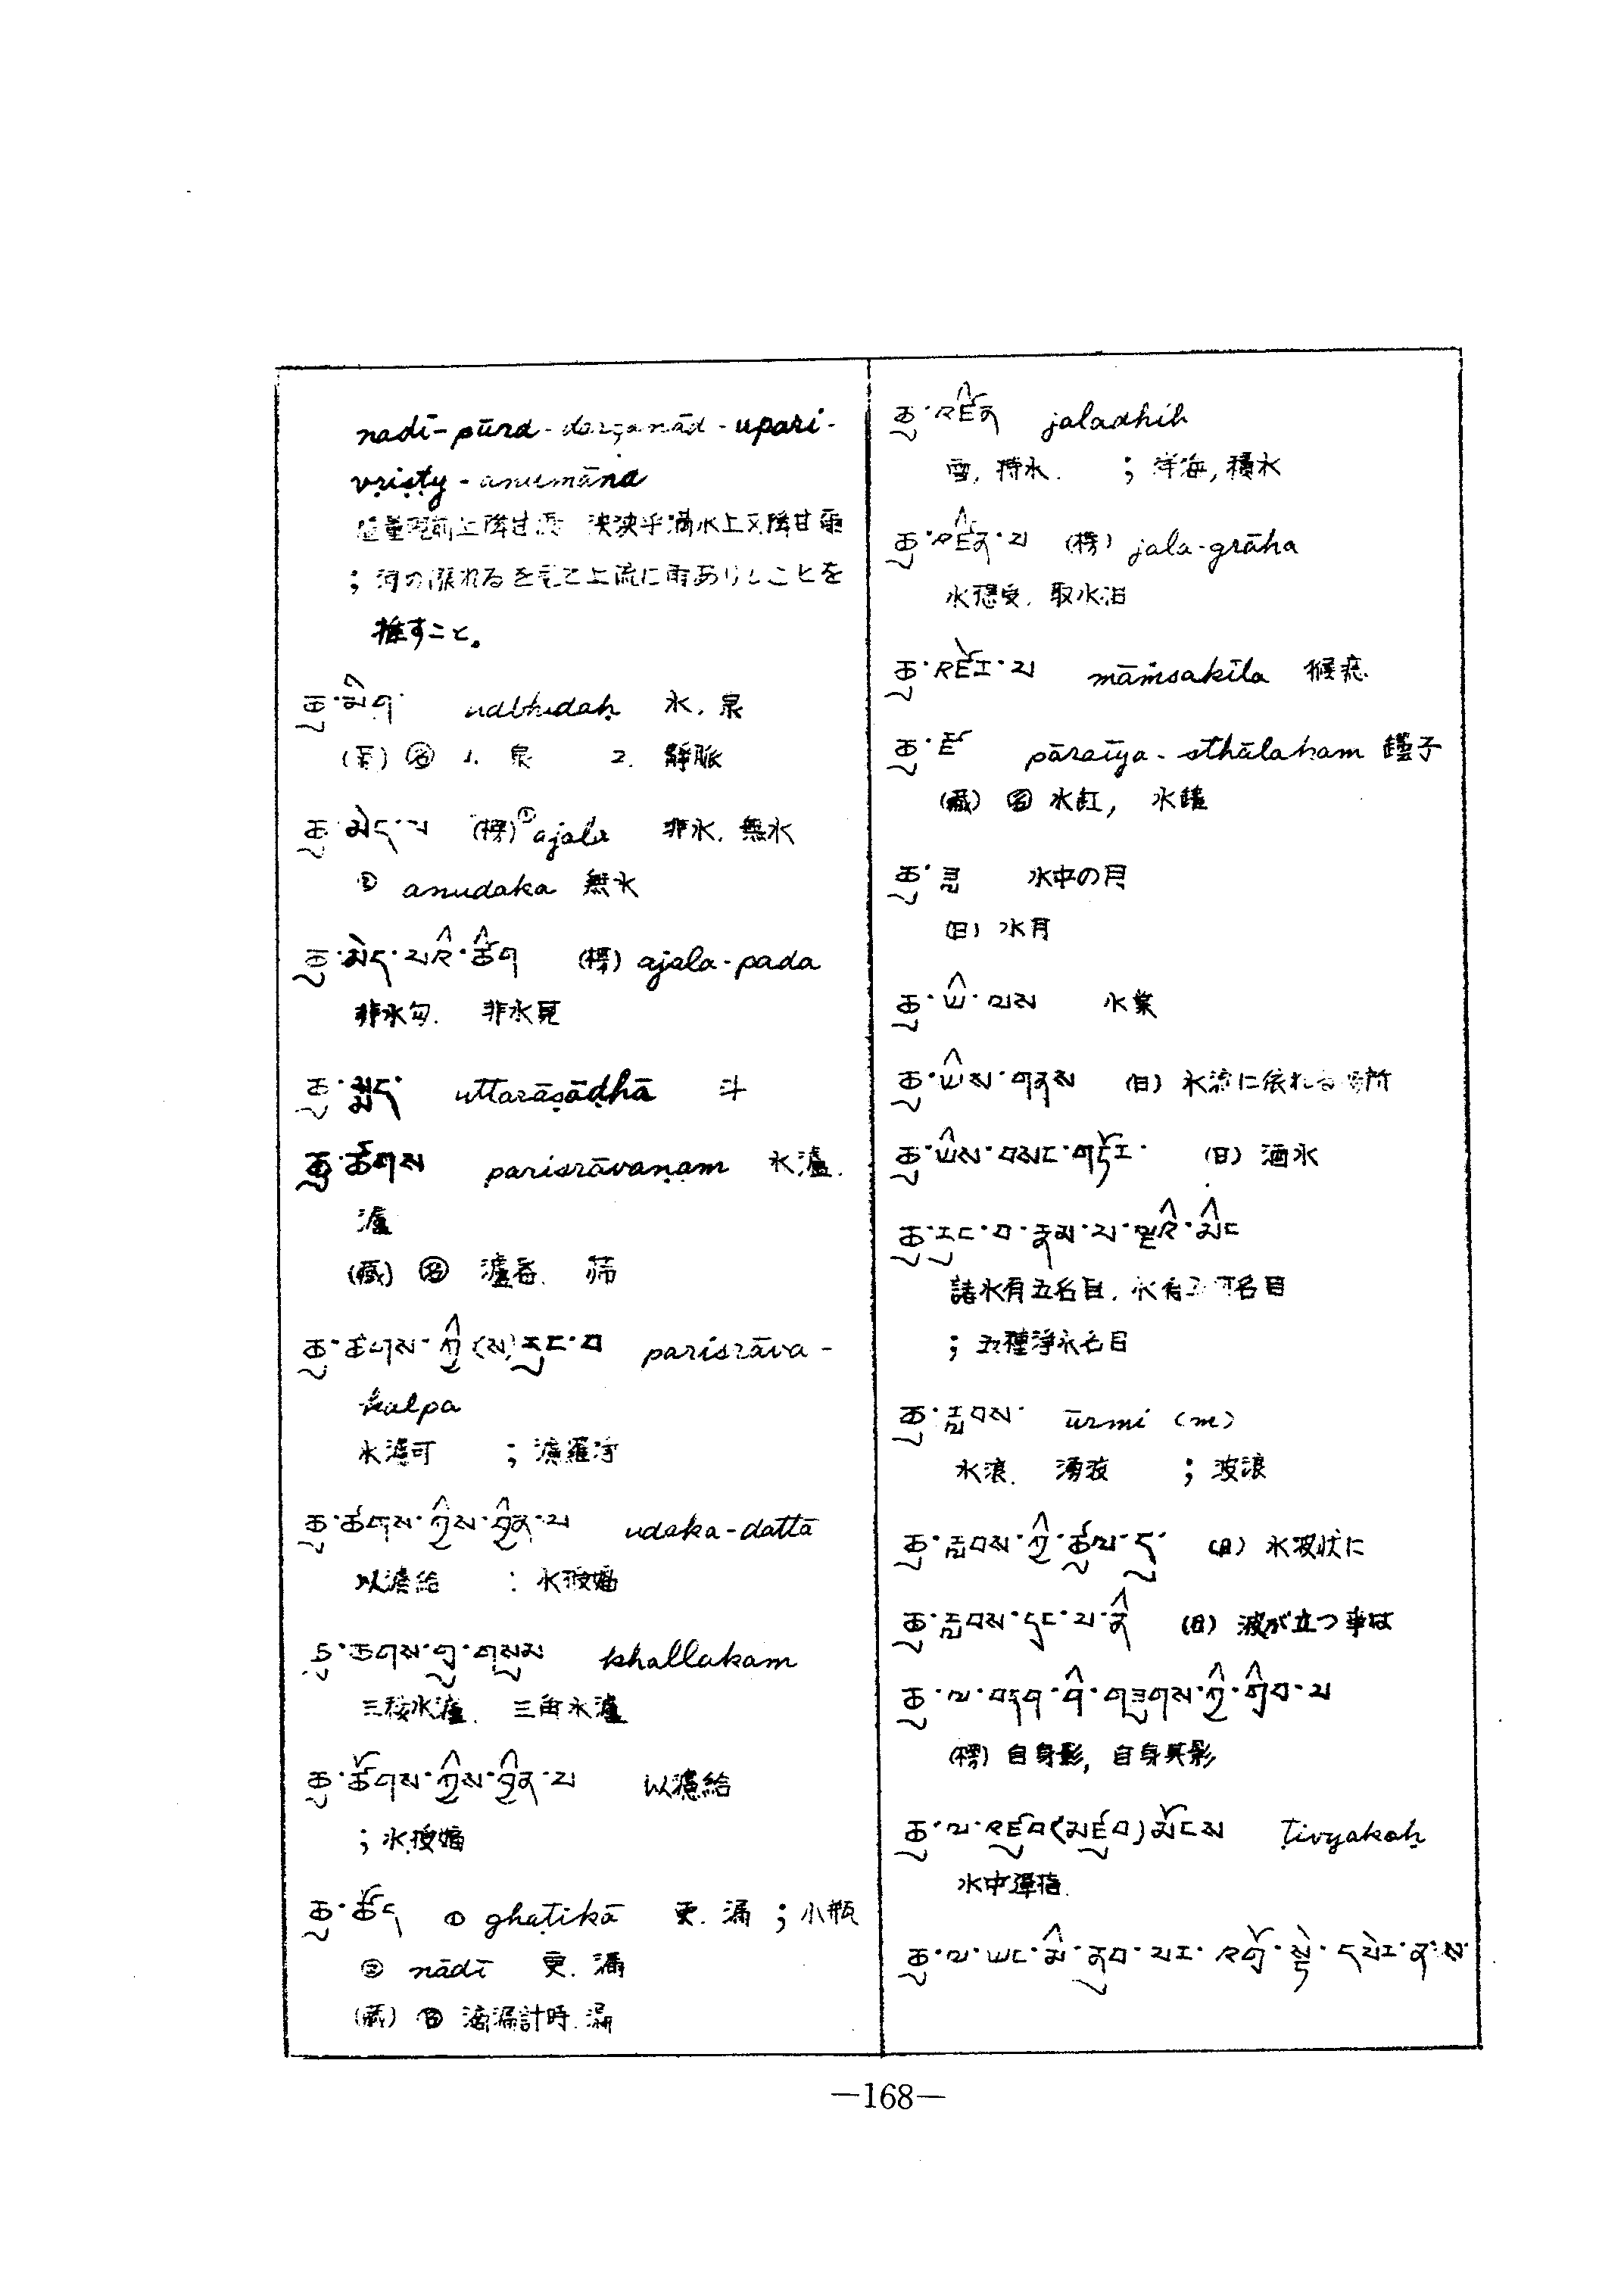 nadī-pūra-darçanād-upari-
vṛiṣṭy-anumāna
水上又降甘雨
; 河の漲れるを見て上流に雨ありしことを
推すこと。
ཆུ་མིག་ udbhidaḥ 水, 泉
名 1. 泉 2. 靜脈
ཆུ་མེད་པ (榜) ① ajala 非水, 無水
② anudaka 無水
ཆུ་མེད་པའི་ཚིག (榜) ajala-pada
非水句. 非水
ཆུ་སྨད་ uttarāṣāḍhā 斗
ཆུ་ཚགས parisrāvaṇam 水濾.
濾
(藏) 名 濾器. 篩
ཆུ་ཚགས་ཀྱི(ས)རུང་བ parisrāva-
kalpa
水濾可 ; 濾羅淨
ཆུ་ཚགས་ཀྱིས་བྱིན་པ udaka-dattā
以濾給 : 水授婚
ཆུ་ཚགས་གྲུ་གསུམ khallakam
三稜水濾. 三角水濾
ཆུ་ཚོགས་ཀྱིས་བྱིན་པ 以濾給
; 水授婚
ཆུ་ཚོད ① ghaṭikā 更. 漏 ; 小瓶
② nādī 更. 漏
(藏) 名 滴漏計時. 漏
ཆུ་འཛིན jaladhiḥ
雲, 持水. ; 洋海, 積水
ཆུ་འཛིན་པ (榜) jala-grāha
水 取水
ཆུ་འཛེར་པ māṁsakīla 猴
ཆུ་རྫ pāraīya-sthālakam 罐子
(藏) 名 水缸, 水罐
ཆུ་ཟླ 水中の月
(日) 水月
ཆུ་ཡི་ལས 水業
ཆུ་ཡིས་གནས (日) 水流に依れる場所
ཆུ་ཡིས་བསང་གཏོར་ (日) 洒水
ཆུ་རུང་བ་རྣམ་པ་ལྔའི་མིང
諸水有五名目. 水有五可名目
; 五種淨水名目
ཆུ་རླབས་ ūrmi (m)
水浪. 湧波 ; 波浪
ཆུ་རླབས་ཀྱི་ཚུལ་དུ་ (日) 水波状に
ཆུ་རླབས་དང་པ་ནི (日) 波が立つ事は
ཆུ་ལ་བདག་གི་གཟུགས་ཀྱི་གྲིབ་མ
(榜) 自身影, 自身其影
ཆུ་ལ་འཛུབ(མཛུབ)མོངས ṭivyakaḥ
水中彈指.
ཆུ་ལ་ཡང་མི་ནུབ་པར་འགྲོ་སྟེ་དཔེར་ན་ས་
—168—